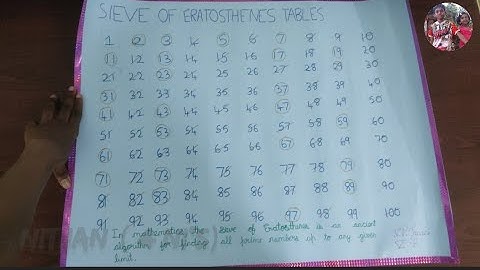 SIEVE OF ERATOSTHENES TABLES
1 2 3 4 5 6 7 8 9 10
11 12 13 14 15 16 17 18 19 20
21 22 23 24 25 26 27 28 29 30
31 32 33 34 35 36 37 38 39 40
41 42 43 44 45 46 47 48 49 50
51 52 53 54 55 56 57 58 59 60
61 62 63 64 65 66 67 68 69 70
71 72 73 74 75 76 77 78 79 80
81 82 83 84 85 86 87 88 89 90
91 92 93 94 95 96 97 98 99 100
In mathematics the sieve of Eratosthenes is an ancient
algorithm for finding all prime numbers up to any given
limit.